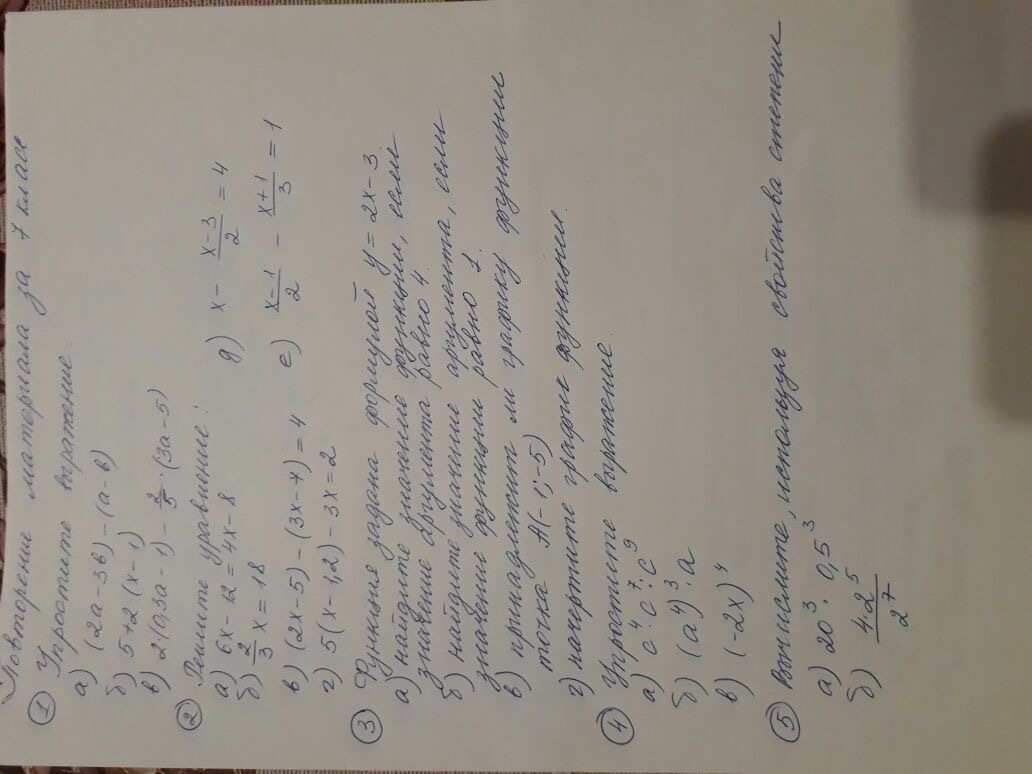 Повторение материала за 7 класс
① Упростите выражение.
а) (2a-3в)-(a-в)
б) 5+2·(x-1)
в) 2·(0,3a-1) - 2/5 · (3a-5)
② Решите уравнение:
а) 6x-12=4x-8
б) 2/3 x = 18
в) (2x-5)-(3x-7)=4
г) 5(x-1,2)-3x=2
д) x - (x-3)/2 = 4
е) (x-1)/2 - (x+1)/3 = 1
③ Функция задана формулой y=2x-3.
а) найдите значение функции, если
значение аргумента равно 4.
б) найдите значение аргумента, если
значение функции равно 1.
в) принадлежит ли графику функции
точка А(-1;-5)
г) начертите график функции.
④ Упростите выражение.
а) c⁴·c⁷:c⁹
б) (a⁴)³·a
в) (-2x)⁴
⑤ Вычислите, используя свойства степени
а) 20³·0,5³
б) 4·2⁵/2⁷